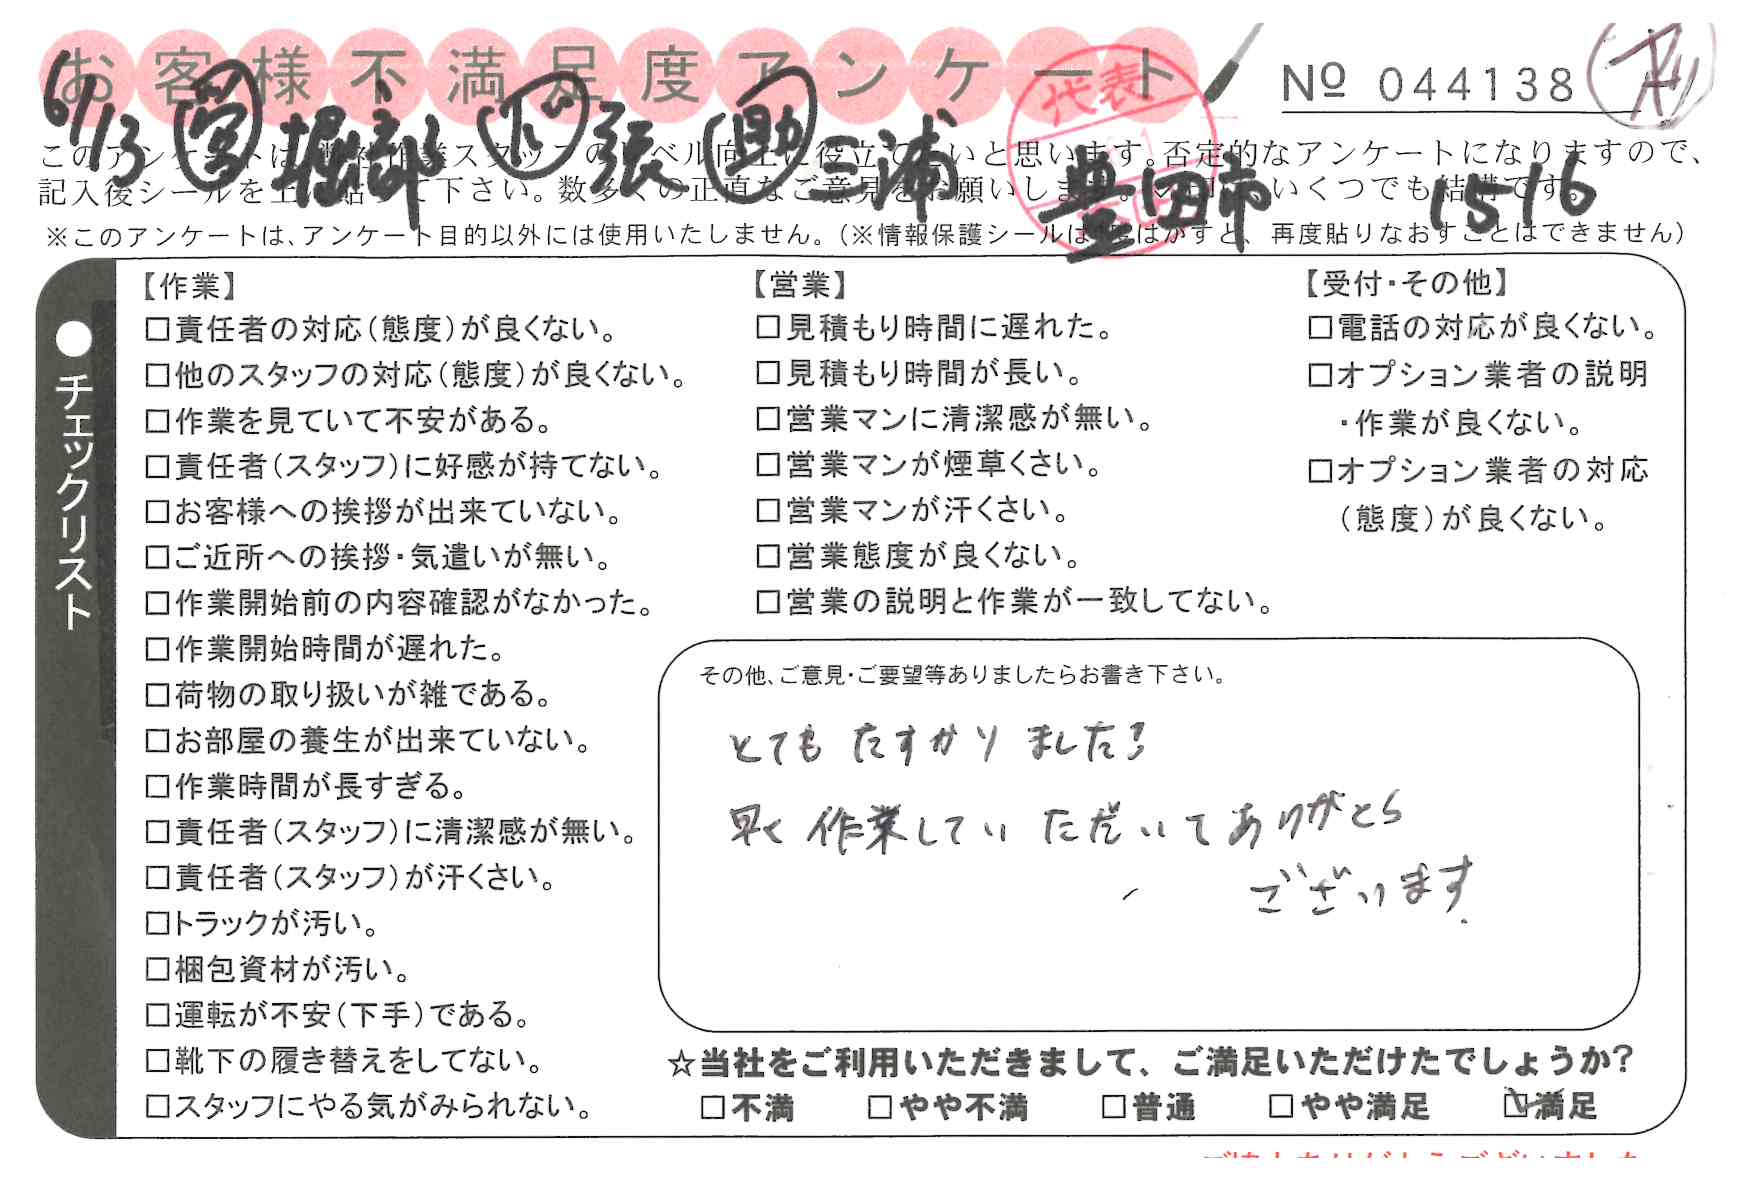 お客様不満足度アンケート
№ 044138
6/13 営 堀部 ド 張 助 三浦 豊田市 1516
代表
このアンケートは、弊社作業スタッフのレベル向上に役立てたいと思います。否定的なアンケートになりますので、
記入後シールを上に貼って下さい。数多くの正直なご意見をお願いします。いくつでも結構です。
※このアンケートは、アンケート目的以外には使用いたしません。（※情報保護シールは1度はがすと、再度貼りなおすことはできません）
●チェックリスト
【作業】
□責任者の対応（態度）が良くない。
□他のスタッフの対応（態度）が良くない。
□作業を見ていて不安がある。
□責任者（スタッフ）に好感が持てない。
□お客様への挨拶が出来ていない。
□ご近所への挨拶・気遣いが無い。
□作業開始前の内容確認がなかった。
□作業開始時間が遅れた。
□荷物の取り扱いが雑である。
□お部屋の養生が出来ていない。
□作業時間が長すぎる。
□責任者（スタッフ）に清潔感が無い。
□責任者（スタッフ）が汗くさい。
□トラックが汚い。
□梱包資材が汚い。
□運転が不安（下手）である。
□靴下の履き替えをしてない。
□スタッフにやる気がみられない。
【営業】
□見積もり時間に遅れた。
□見積もり時間が長い。
□営業マンに清潔感が無い。
□営業マンが煙草くさい。
□営業マンが汗くさい。
□営業態度が良くない。
□営業の説明と作業が一致してない。
【受付・その他】
□電話の対応が良くない。
□オプション業者の説明
・作業が良くない。
□オプション業者の対応
（態度）が良くない。
その他、ご意見・ご要望等ありましたらお書き下さい。
とてもたすかりました！
早く作業していただいてありがとう
ございます。
☆当社をご利用いただきまして、ご満足いただけたでしょうか？
□不満 □やや不満 □普通 □やや満足 ☑満足